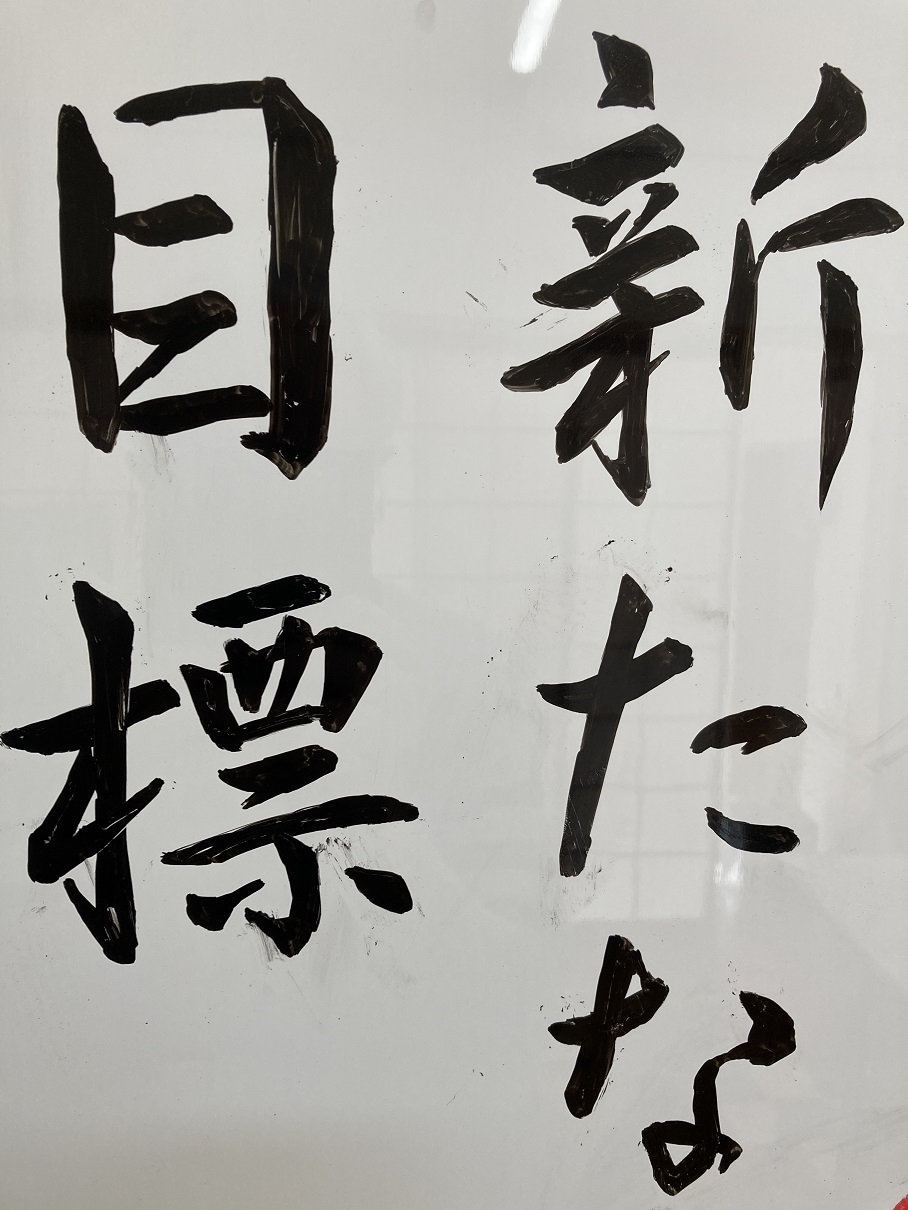 新たな
目標